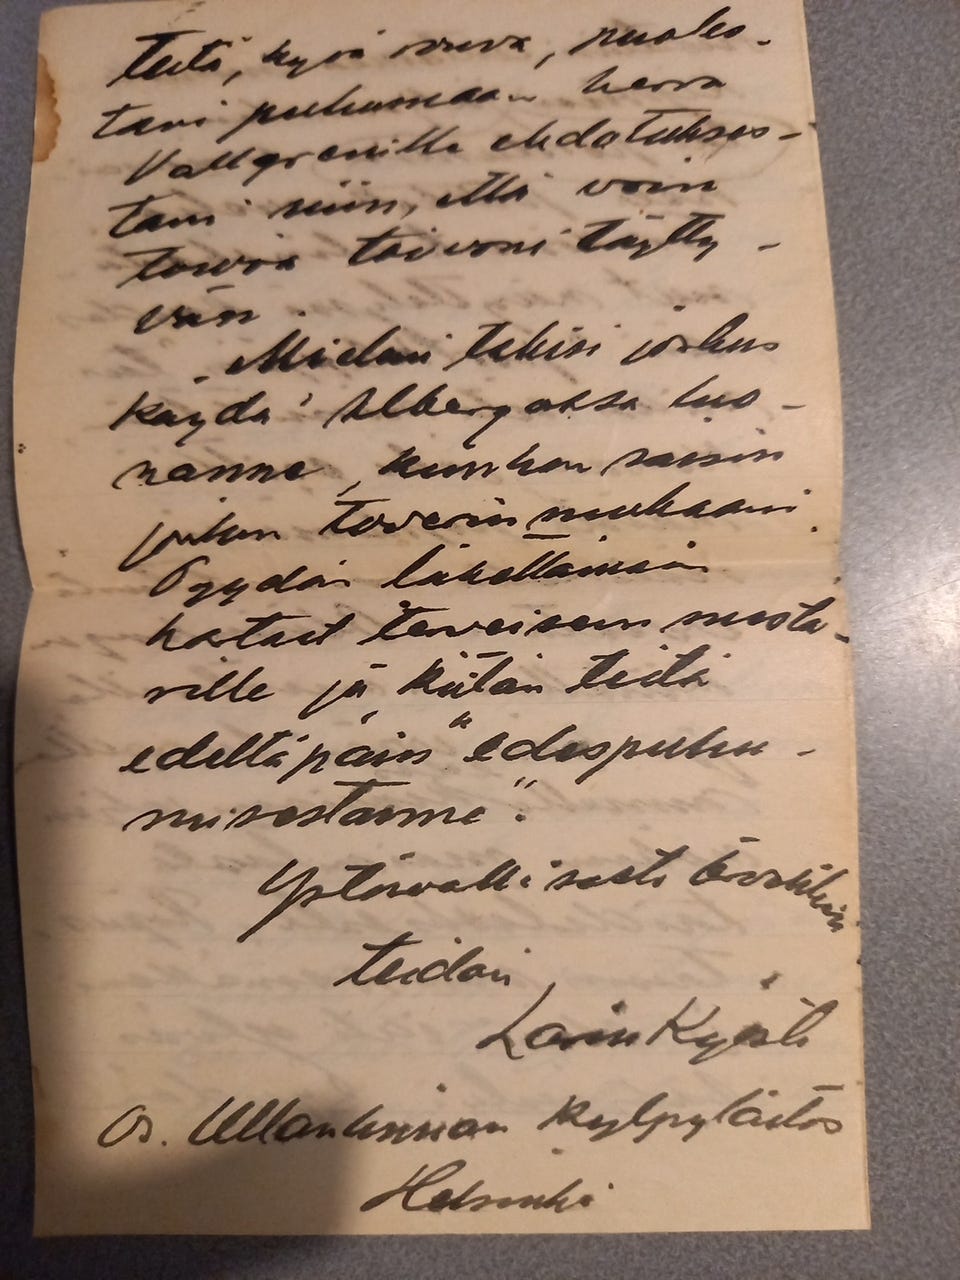 Teitä, hyvä rouva, puoles-
tani puhumaan herra
Vallgrenille ehdotukses-
tani niin, että voin
toivoa toivoni täytty-
vän.
Mieleni tekisi joskus
käydä Albergassa luo-
nanne, kunhan saisin
jonkun toverin mukaani.
Pyydän lähettämään
hartaat terveiseni mesta-
rille ja kiitän teitä
edeltäpäin "edespuhu-
misestanne".
Ystävällisesti
teidän
Larin Kyösti
Os. Ullanlinnan kylpylaitos
Helsinki